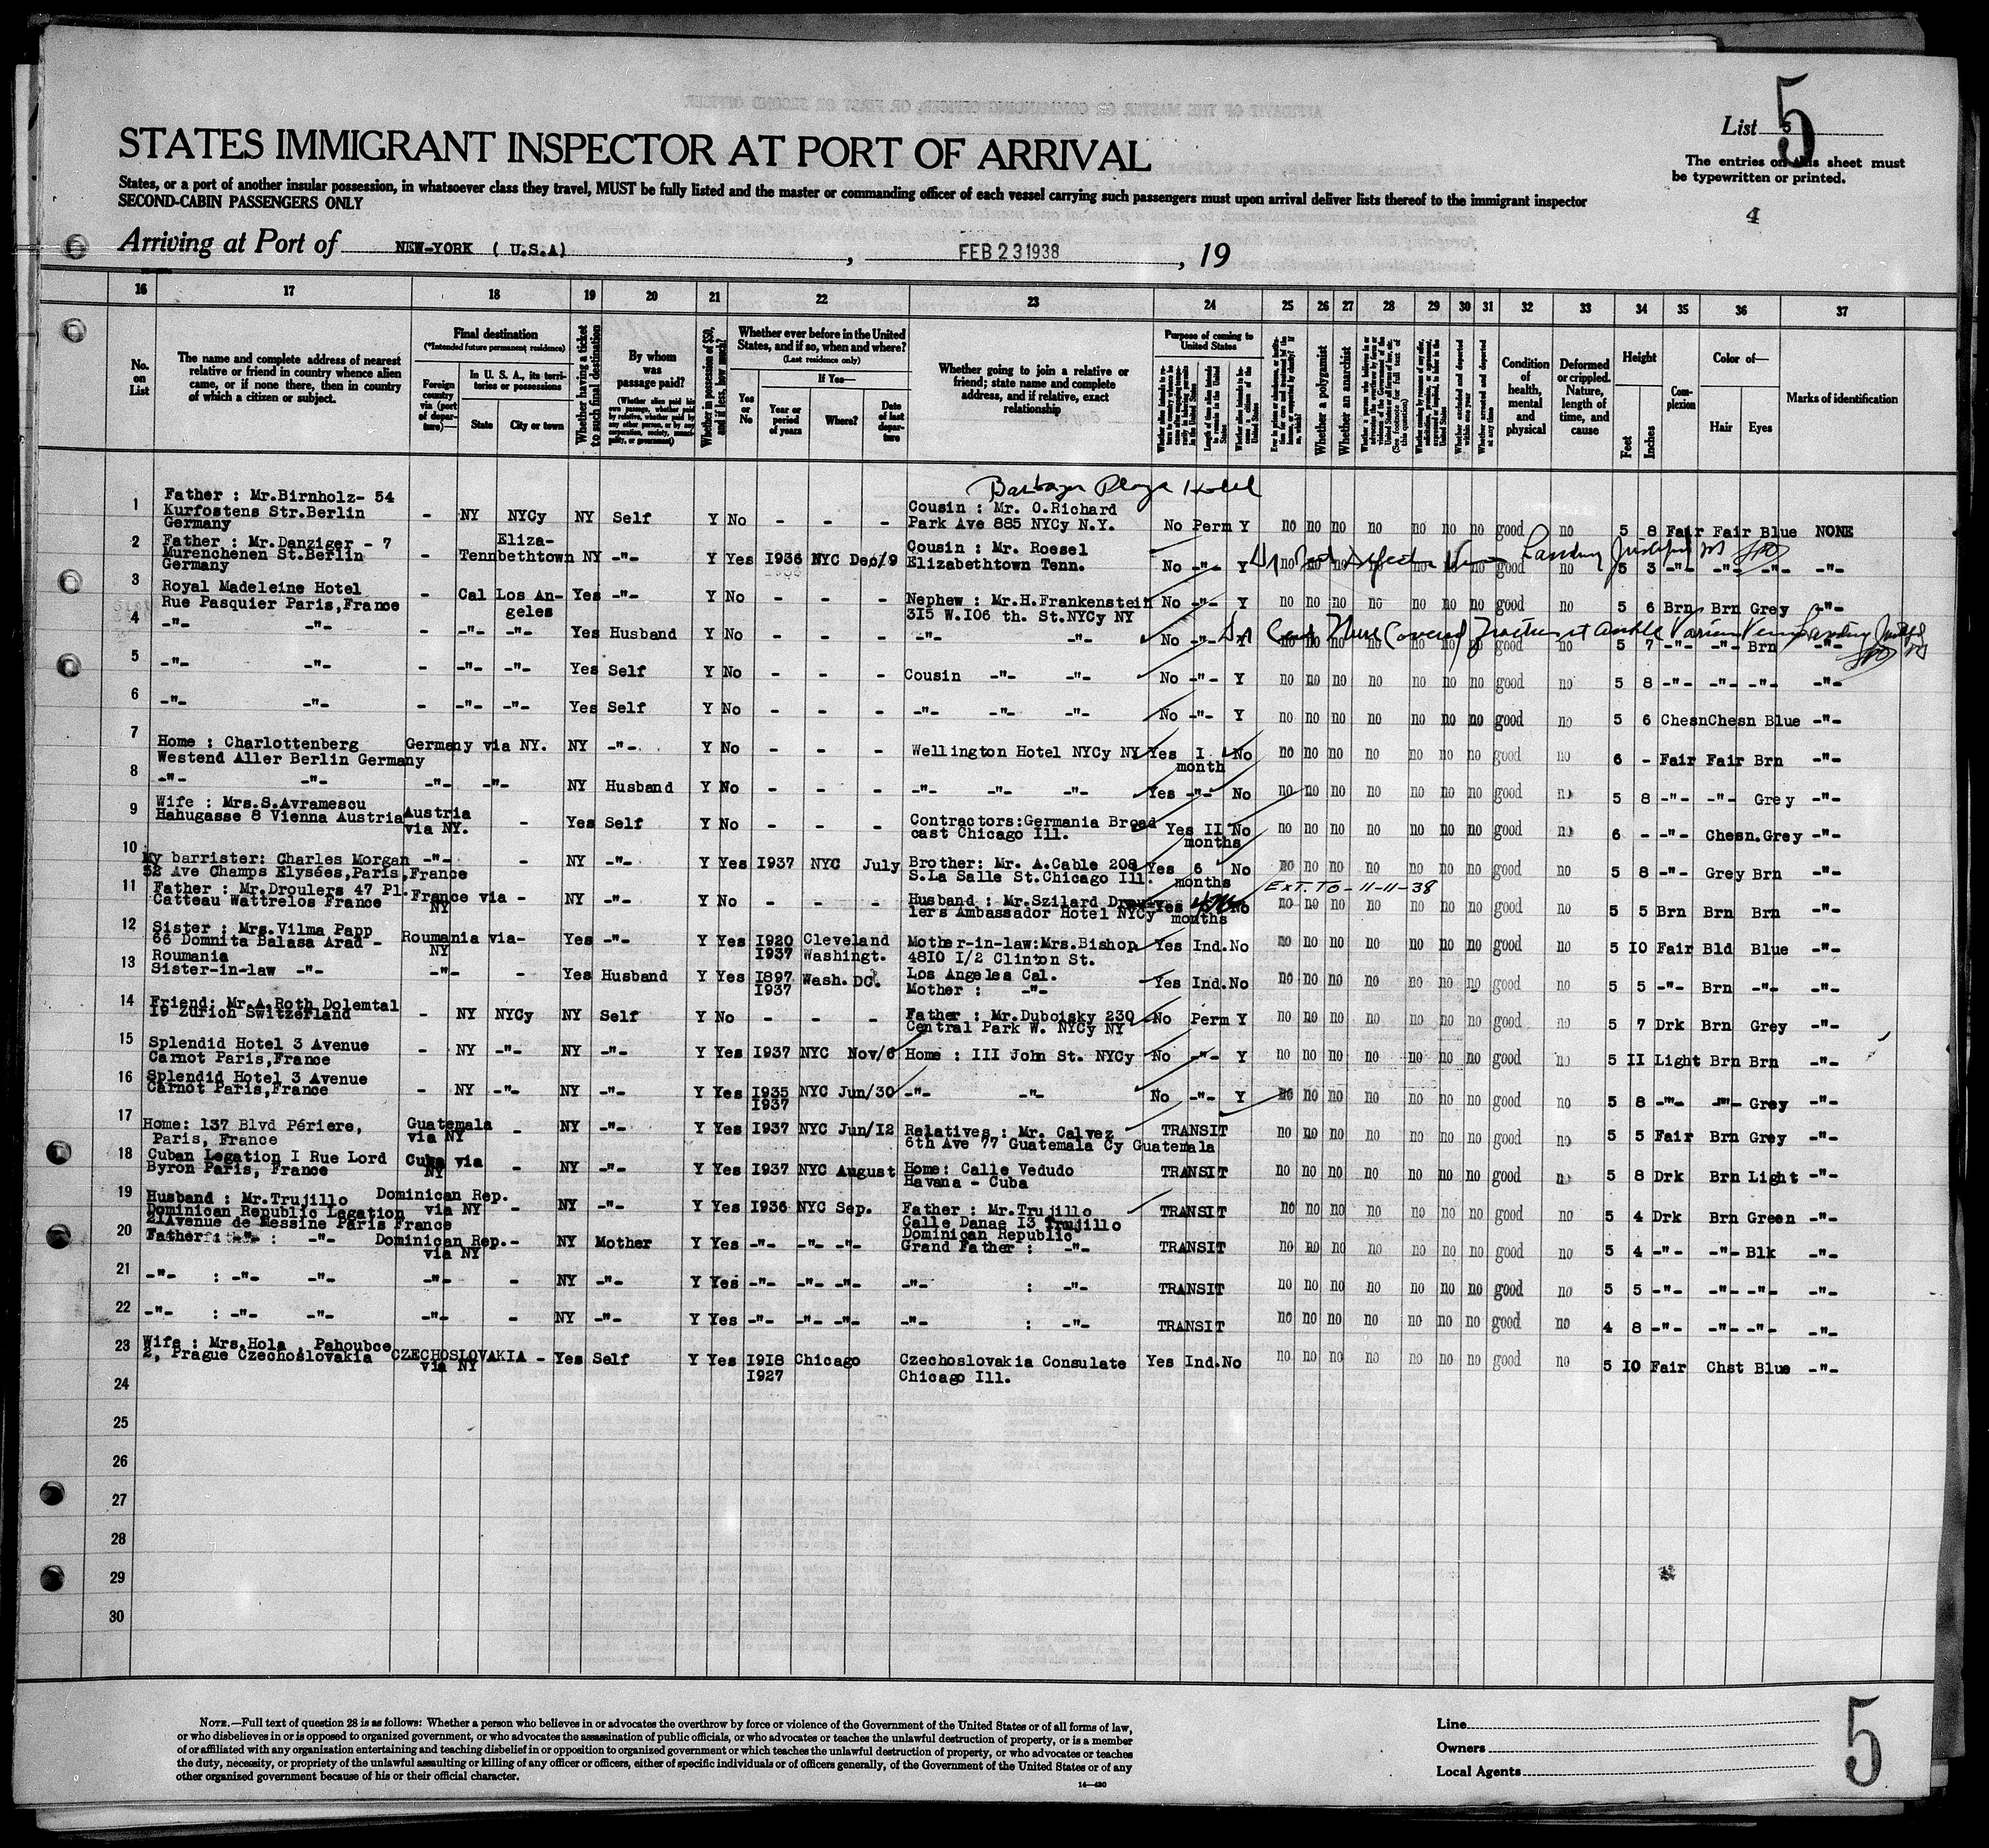 5
List 5
The entries on this sheet must
be typewritten or printed.
4
STATES IMMIGRANT INSPECTOR AT PORT OF ARRIVAL
States, or a port of another insular possession, in whatsoever class they travel, MUST be fully listed and the master or commanding officer of each vessel carrying such passengers must upon arrival deliver lists thereof to the immigrant inspector
SECOND-CABIN PASSENGERS ONLY
Arriving at Port of NEW-YORK ( U.S.A) , FEB 23 1938 , 19
16 17 18 19 20 21 22 23 24 25 26 27 28 29 30 31 32 33 34 35 36 37
No. on List
The name and complete address of nearest relative or friend in country whence alien came, or if none there, then in country of which a citizen or subject.
Final destination
(*Intended future permanent residence)
Foreign country via (port of departure)
In U. S. A., its territories or possessions
State
City or town
Whether having a ticket to such final destination
By whom was passage paid?
(Whether alien paid his own passage, whether paid by relative, whether paid by any other person, or by any corporation, society, municipality, or government)
Whether in possession of $50, and if less, how much?
Whether ever before in the United States, and if so, when and where?
(Last residence only)
Yes or No
If Yes—
Year or period of years
Where?
Date of last departure
Whether going to join a relative or friend; state name and complete address, and if relative, exact relationship
Purpose of coming to United States
Length of time alien intends to remain in the United States
Whether alien intends to become a citizen of the United States
Whether a polygamist
Whether an anarchist
Condition of health, mental and physical
Deformed or crippled. Nature, length of time, and cause
Height
Feet
Inches
Complexion
Color of—
Hair
Eyes
Marks of identification
Plaza Hotel
1 Father : Mr.Birnholz- 54 Kurfostens Str.Berlin Germany - NY NYCy NY Self Y No - - - Cousin : Mr. O.Richard Park Ave 885 NYCy N.Y. No Perm Y no no no no no no no good no 5 8 Fair Fair Blue NONE
2 Father : Mr.Danziger - 7 Murenchenen St.Berlin Germany - Tenn Elizabethtown NY -"- Y Yes I936 NYC Dec/9 Cousin : Mr. Roesel Elizabethtown Tenn. No -"- Y no no no no no no no good no 5 3 -"- -"- -"- -"-
3 Royal Madeleine Hotel Rue Pasquier Paris,France - Cal Los Angeles Yes -"- Y No - - - Nephew : Mr.H.Frankenstein 315 W.I06 th. St.NYCy NY No -"- Y no no no no no no no good no 5 6 Brn Brn Grey -"-
4 -"- -"- - -"- -"- Yes Husband Y No - - - -"- -"- No -"- Y no no no no no no no good no 5 7 -"- -"- Brn -"-
5 -"- -"- - -"- -"- Yes Self Y No - - - Cousin -"- -"- No -"- Y no no no no no no no good no 5 8 -"- -"- -"- -"-
6 -"- -"- - -"- -"- Yes Self Y No - - - -"- -"- -"- No -"- Y no no no no no no no good no 5 6 Chesn Chesn Blue -"-
7 Home : Charlottenberg Westend Aller Berlin Germany Germany via NY. NY -"- Y No - - - Wellington Hotel NYCy NY Yes I month No no no no no no no no good no 6 - Fair Fair Brn -"-
8 -"- -"- -"- -"- NY Husband Y No - - - -"- -"- -"- Yes -"- No no no no no no no no good no 5 8 -"- -"- Grey -"-
9 Wife : Mrs.S.Avramescu Hahugasse 8 Vienna Austria Austria via NY. - Yes Self Y No - - - Contractors:Germania Broadcast Chicago Ill. Yes II months No no no no no no no no good no 6 - -"- Chesn. Grey -"-
10 My barrister: Charles Morgan 52 Ave Champs Elysées,Paris,France -"- - NY -"- Y Yes I937 NYC July Brother: Mr. A.Cable 208 S.La Salle St.Chicago Ill. Yes 6 months No no no no no no no no good no 5 8 -"- Grey Brn -"-
EXT. TO - 11-11-38
11 Father : Mr.Droulers 47 Pl. Catteau Wattrelos France France via NY - NY -"- Y No - - - Husband : Mr.Szilard Droulers Ambassador Hotel NYCy Yes months No no no no no no no no good no 5 5 Brn Brn Brn -"-
12 Sister : Mrs.Vilma Papp 66 Domnita Balasa Arad - Roumania Roumania via NY - Yes -"- Y Yes I920 I937 Cleveland Washingt. Mother-in-law:Mrs.Bishop 4810 I/2 Clinton St. Los Angeles Cal. Yes Ind. No no no no no no no no good no 5 IO Fair Bld Blue -"-
13 Sister-in-law -"- -"- - Yes Husband Y Yes I897 I937 Wash. DC. Mother : -"- Yes Ind. No no no no no no no no good no 5 5 -"- Brn -"- -"-
14 Friend: Mr.A.Roth Dolemtal I9 Zurich Switzerland - NY NYCy NY Self Y No - - - Father : Mr.Duboisky 230 Central Park W. NYCy NY No Perm Y no no no no no no no good no 5 7 Drk Brn Grey -"-
15 Splendid Hotel 3 Avenue Carnot Paris,France - NY -"- NY -"- Y Yes I937 NYC Nov/6 Home : III John St. NYCy No -"- Y no no no no no no no good no 5 II Light Brn Brn -"-
16 Splendid Hotel 3 Avenue Carnot Paris,France - NY -"- NY -"- Y Yes I935 I937 NYC Jun/30 -"- -"- No -"- Y no no no no no no no good no 5 8 -"- -"- Grey -"-
17 Home: 137 Blvd Périere, Paris, France Guatemala via NY - NY -"- Y Yes I937 NYC Jun/I2 Relatives : Mr. Calvez 6th Ave 77 Guatemala Cy Guatemala TRANSIT no no no no no no no good no 5 5 Fair Brn Grey -"-
18 Cuban Legation I Rue Lord Byron Paris, France Cuba via NY - NY -"- Y Yes I937 NYC August Home: Calle Vedudo Havana - Cuba TRANSIT no no no no no no no good no 5 8 Drk Brn Light -"-
19 Husband : Mr.Trujillo Dominican Republic Legation 2IAvenue de Messine Paris France Dominican Rep. via NY - NY -"- Y Yes I936 NYC Sep. Father : Mr.Trujillo Calle Danae I3 Trujillo Dominican Republic TRANSIT no no no no no no no good no 5 4 Drk Brn Green -"-
20 Father : -"- Dominican Rep. via NY - NY Mother Y Yes -"- -"- -"- Grand Father : -"- TRANSIT no no no no no no no good no 5 4 -"- -"- Blk -"-
21 -"- : -"- -"- -"- - NY -"- Y Yes -"- -"- -"- -"- : -"- TRANSIT no no no no no no no good no 5 5 -"- -"- -"- -"-
22 -"- : -"- -"- -"- - NY -"- Y Yes -"- -"- -"- -"- : -"- TRANSIT no no no no no no no good no 4 8 -"- -"- -"- -"-
23 Wife : Mrs.Hola , Pahoubce 2, Prague Czechoslovakia CZECHOSLOVAKIA via NY - Yes Self Y Yes I9I8 I927 Chicago Czechoslovakia Consulate Chicago Ill. Yes Ind. No no no no no no no no good no 5 IO Fair Chst Blue -"-
24
25
26
27
28
29
30
NOTE.—Full text of question 28 is as follows: Whether a person who believes in or advocates the overthrow by force or violence of the Government of the United States or of all forms of law,
or who disbelieves in or is opposed to organized government, or who advocates the assassination of public officials, or who advocates or teaches the unlawful destruction of property, or is a member
of or affiliated with any organization entertaining and teaching disbelief in or opposition to organized government or which teaches the unlawful destruction of property, or who advocates or teaches
the duty, necessity, or propriety of the unlawful assaulting or killing of any officer or officers, either of specific individuals or of officers generally, of the Government of the United States or of any
other organized government because of his or their official character.
14—430
Line
Owners
Local Agents
5